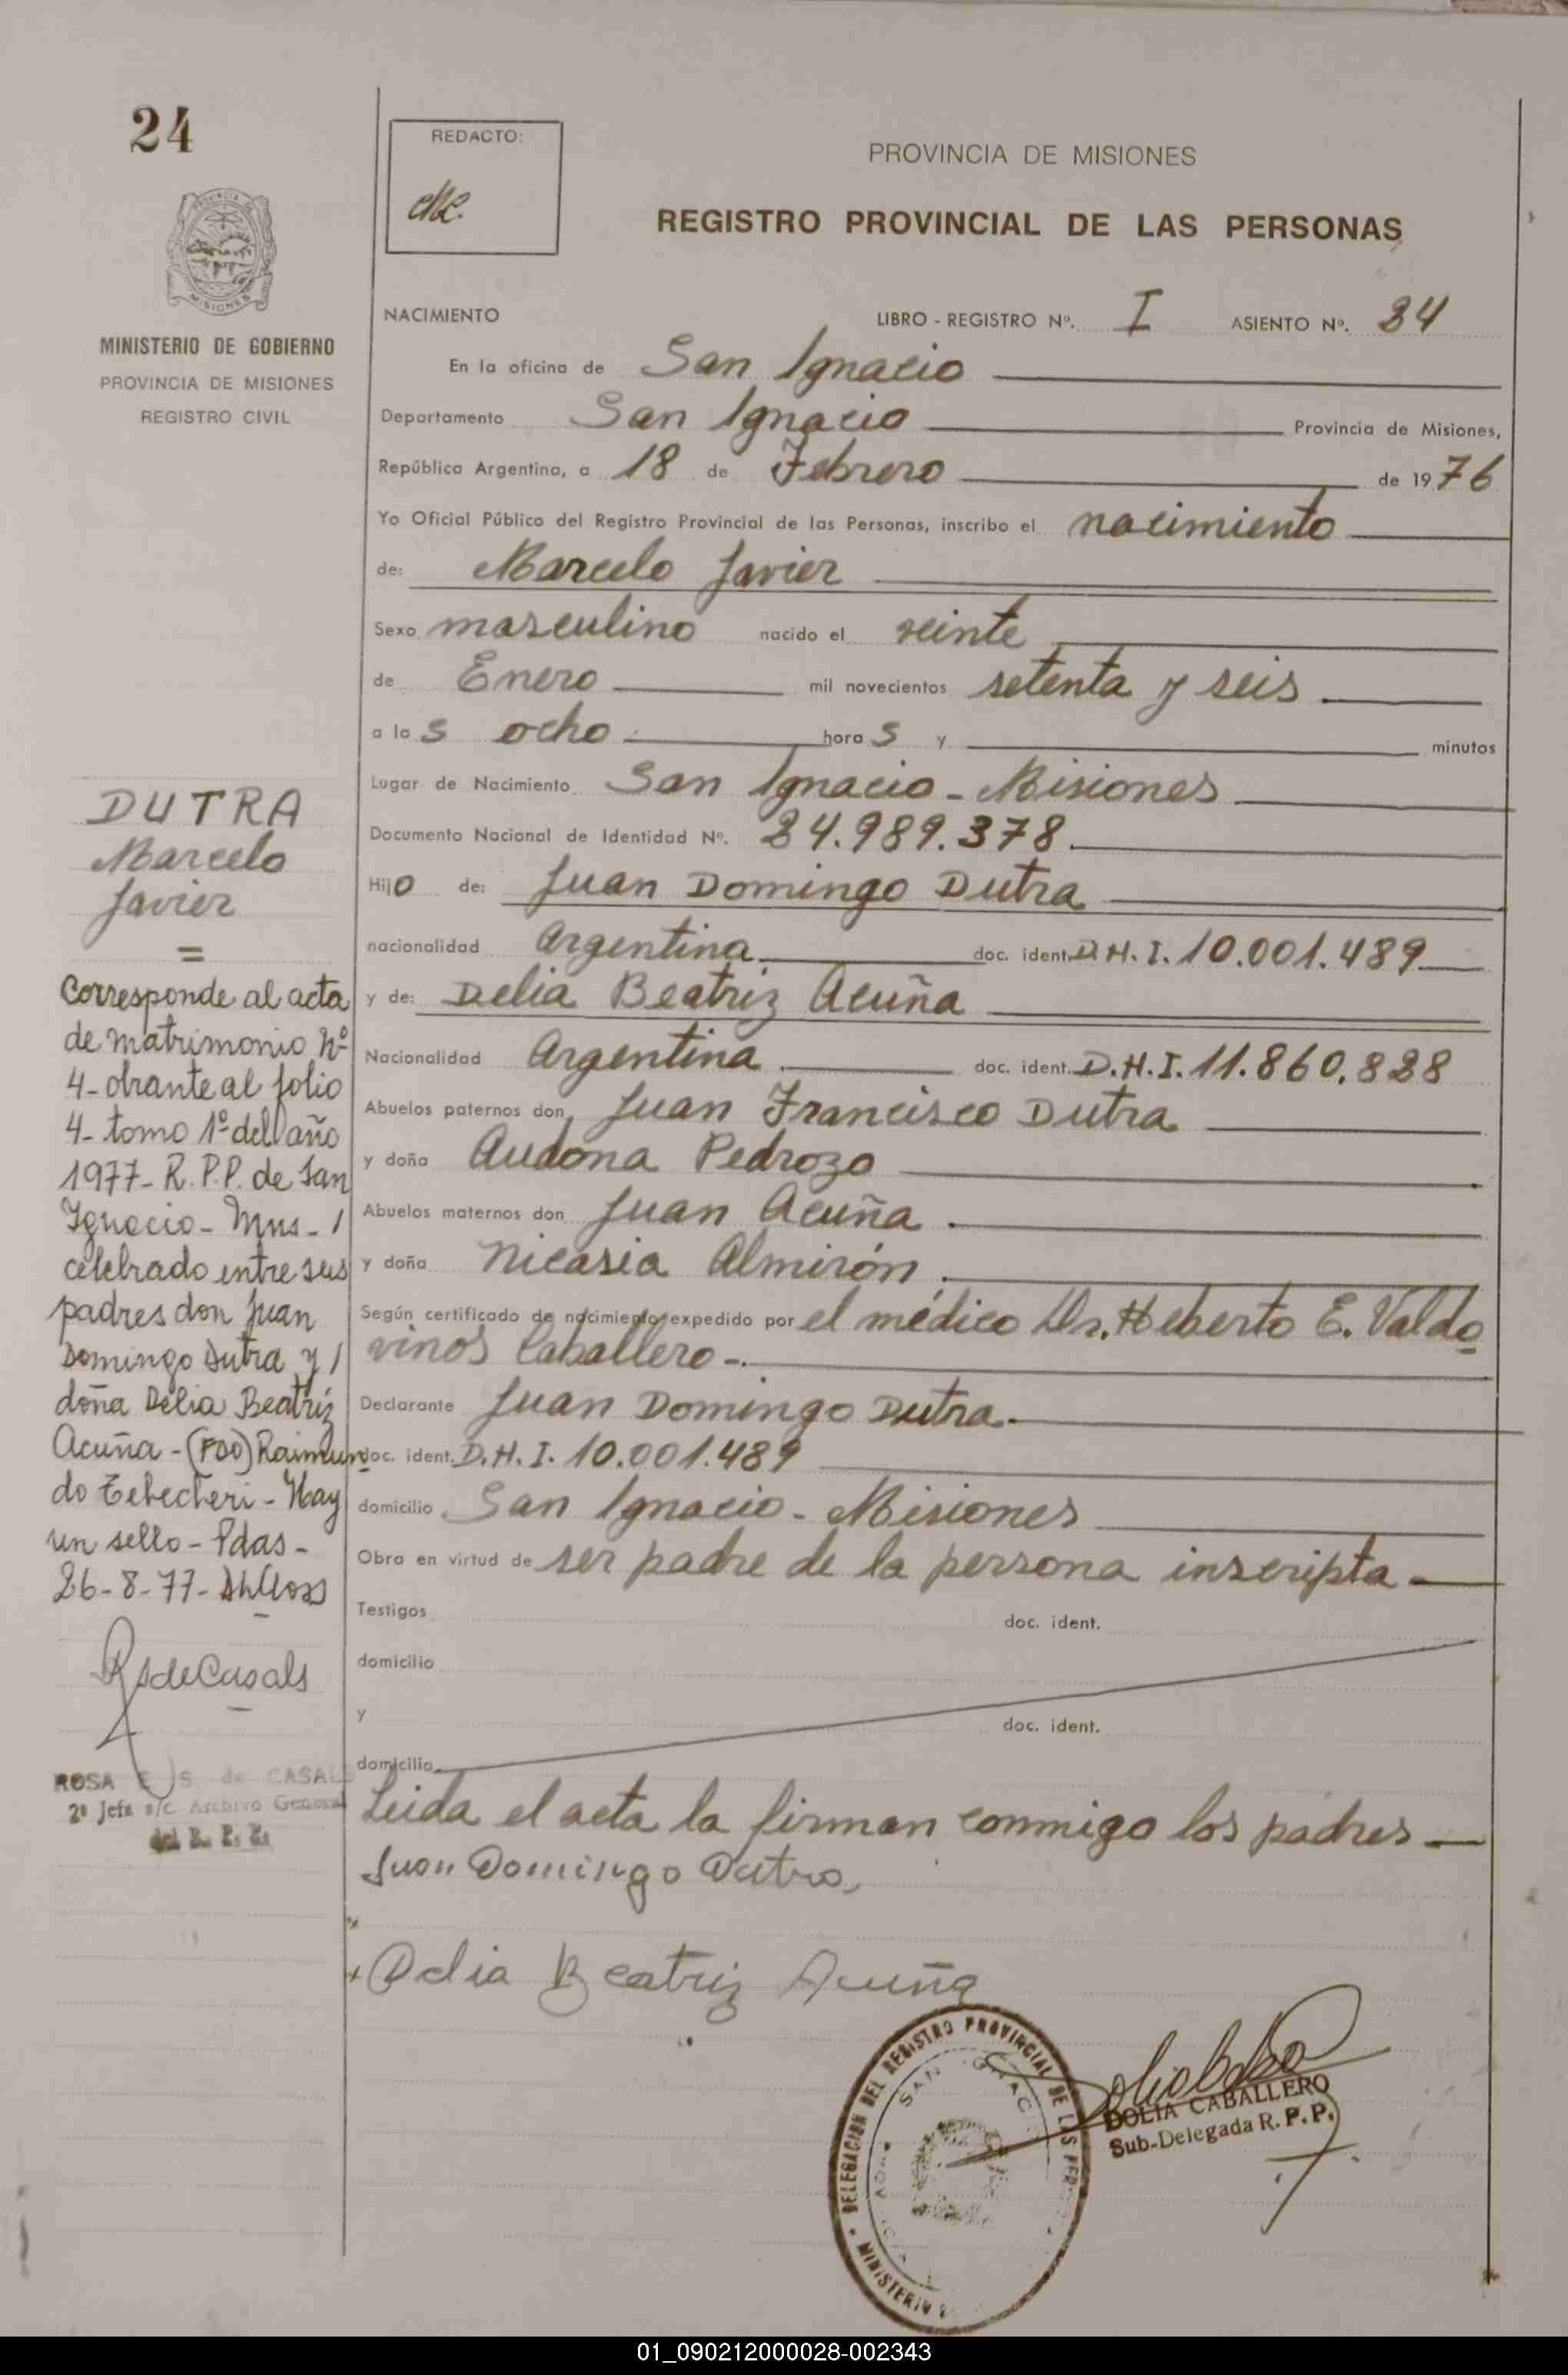 24
REDACTO:
PROVINCIA DE MISIONES
REGISTRO PROVINCIAL DE LAS PERSONAS
MISIONES
MINISTERIO DE GOBIERNO
PROVINCIA DE MISIONES
REGISTRO CIVIL
NACIMIENTO LIBRO - REGISTRO Nº. I ASIENTO Nº. 24
En la oficina de San Ignacio
Departamento San Ignacio Provincia de Misiones,
República Argentina, a 18 de Febrero de 1976
Yo Oficial Público del Registro Provincial de las Personas, inscribo el nacimiento
de: Marcelo Javier
Sexo masculino nacido el veinte
de Enero mil novecientos setenta y seis
a las ocho horas y minutos
Lugar de Nacimiento San Ignacio - Misiones
Documento Nacional de Identidad Nº. 24.989.378.
Hijo de: Juan Domingo Dutra
nacionalidad Argentina doc. ident. D.N.I. 10.001.489
y de: Delia Beatriz Acuña
Nacionalidad Argentina doc. ident. D.N.I. 11.860.828
Abuelos paternos don Juan Francisco Dutra
y doña Audona Pedrozo
Abuelos maternos don Juan Acuña
y doña Nicasia Almirón
Según certificado de nacimiento expedido por el médico Dr. Heberto E. Valdo
vinos Caballero-.
Declarante Juan Domingo Dutra.
doc. ident. D.N.I. 10.001.489
domicilio San Ignacio - Misiones
Obra en virtud de ser padre de la persona inscripta-
Testigos doc. ident.
domicilio
y doc. ident.
domicilio
Leida el acta la firman conmigo los padres
Juan Domingo Dutra
Delia Beatriz Acuña
DELEGACION DEL REGISTRO PROVINCIAL DE LAS PER
SAN
MINISTERIO
DOLIA CABALLERO
Sub-Delegada R. P. P.
DUTRA
Marcelo
Javier
=
Corresponde al acta
de matrimonio Nº
4- obrante al folio
4- tomo 1º del año
1977- R.P.P. de San
Ignacio- Mns- /
celebrado entre sus
padres don Juan
Domingo Dutra y /
doña Delia Beatriz
Acuña - (FDO) Raimun
do - Hay
un sello - Pdas -
26-8-77-
RSdeCasals
ROSA E. S. de CASALS
2ª Jefa a/c. Archivo General
del R. P. P.
01_090212000028-002343